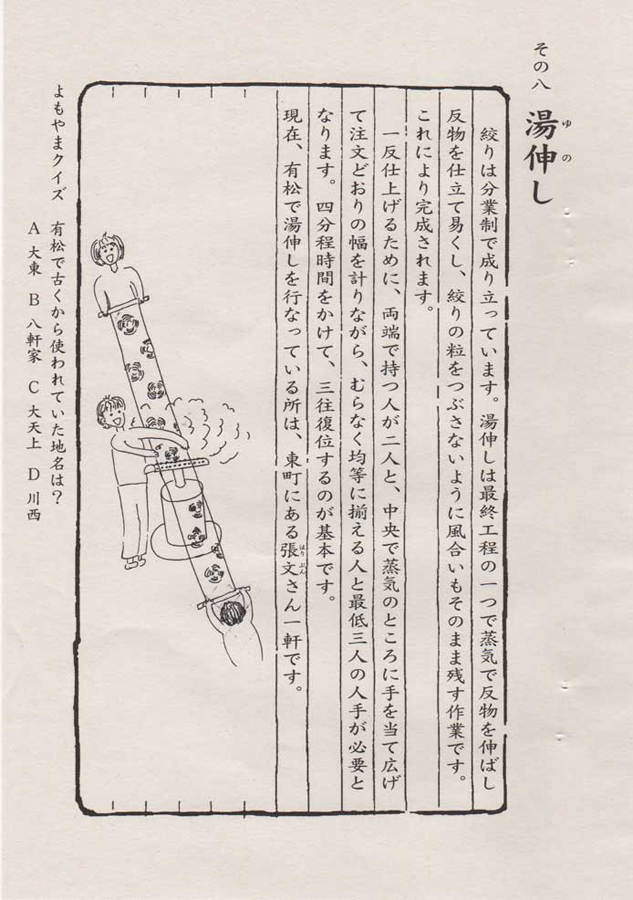 その八 湯伸し
ゆの
絞りは分業制で成り立っています。湯伸しは最終工程の一つで蒸気で反物を伸ばし
反物を仕立て易くし、絞りの粒をつぶさないように風合いもそのまま残す作業です。
これにより完成されます。
一反仕上げるために、両端で持つ人が二人と、中央で蒸気のところに手を当て広げ
て注文どおりの幅を計りながら、むらなく均等に揃える人と最低三人の人手が必要と
なります。四分程時間をかけて、三往復位するのが基本です。
現在、有松で湯伸しを行なっている所は、東町にある張文さん一軒です。
はりぶん
よもやまクイズ 有松で古くから使われていた地名は？
A 大東 B 八軒家 C 大天上 D 川西